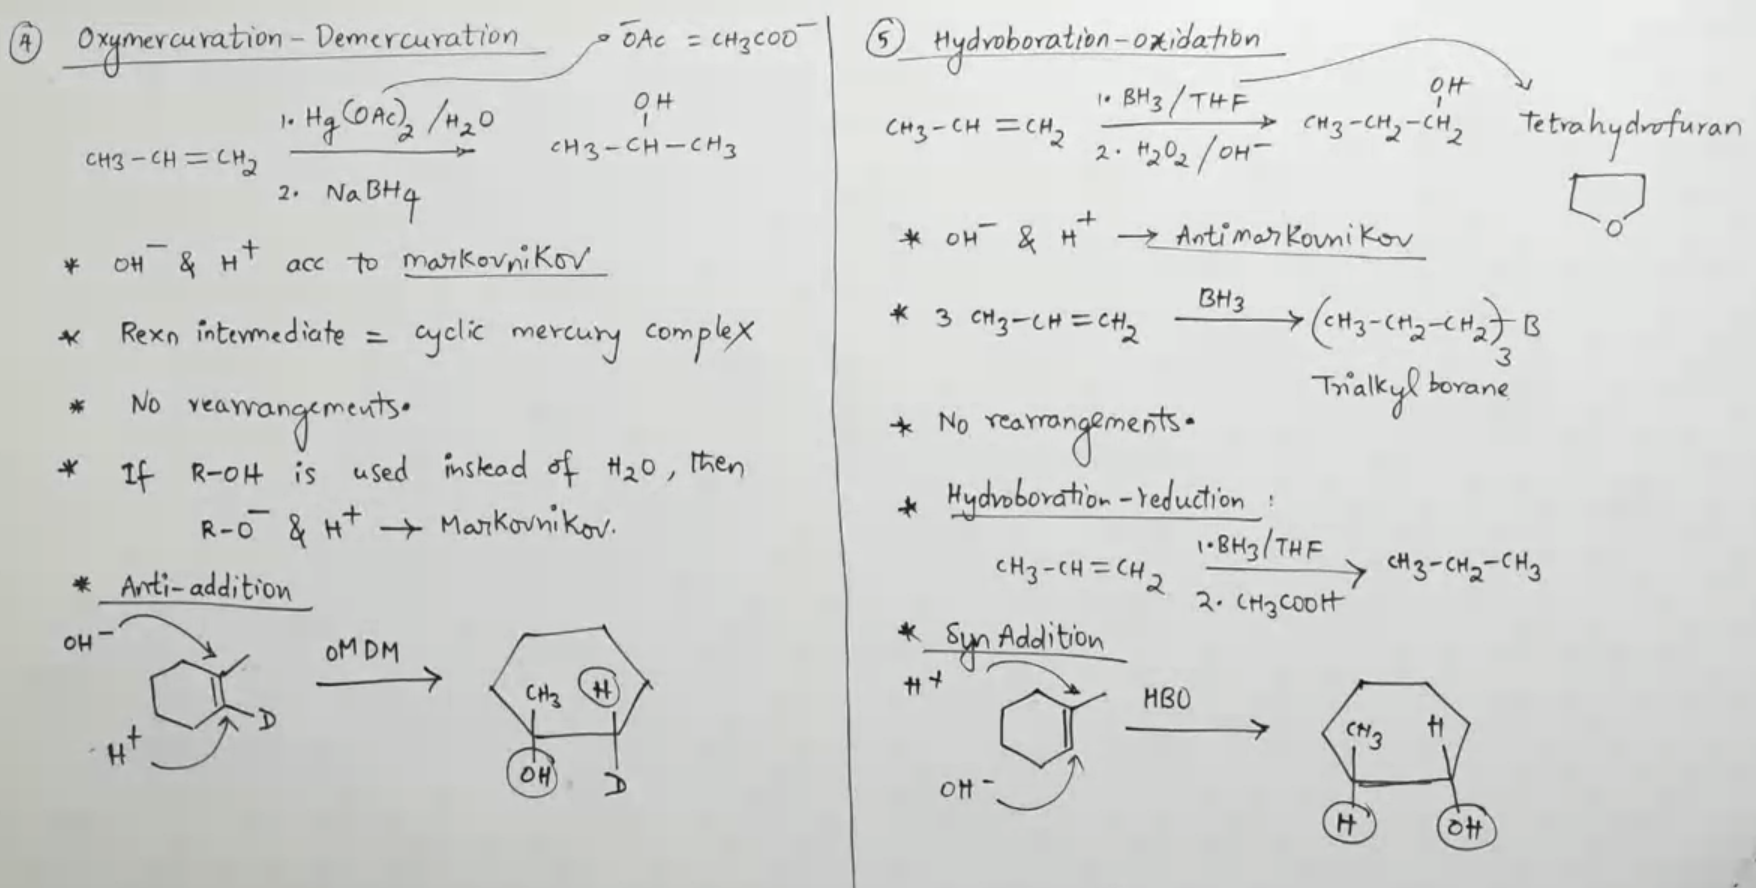 ④ Oxymercuration - Demercuration
⁻OAc = CH3COO⁻
CH3-CH=CH2 1. Hg(OAc)2/H2O 2. NaBH4 → CH3-CH-CH3
OH
* OH⁻ & H⁺ acc to markovnikov
* Rexn intermediate = cyclic mercury complex
* No rearrangements.
* If R-OH is used instead of H2O, then
R-O⁻ & H⁺ → Markovnikov.
* Anti-addition
OH⁻
H⁺
D
OMDM
CH3 H
OH D
⑤ Hydroboration-oxidation
CH3-CH=CH2 1. BH3/THF 2. H2O2/OH⁻ → CH3-CH2-CH2
OH
Tetrahydrofuran
O
* OH⁻ & H⁺ → Antimarkovnikov
* 3 CH3-CH=CH2 BH3 → (CH3-CH2-CH2)3 B
Trialkyl borane
* No rearrangements.
* Hydroboration-reduction:
CH3-CH=CH2 1. BH3/THF 2. CH3COOH → CH3-CH2-CH3
* Syn Addition
H⁺
OH⁻
HBO
CH3 H
H OH